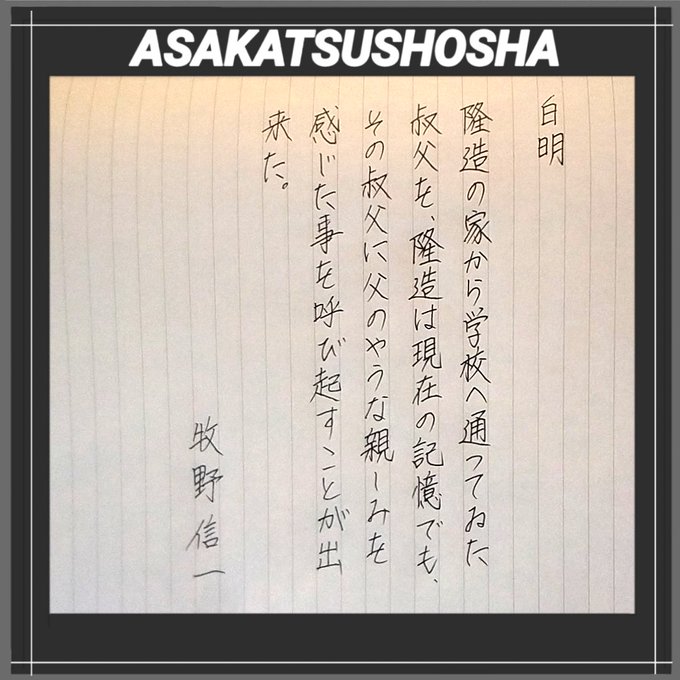 ASAKATSUSHOSHA
白明
隆造の家から学校へ通ってゐた
叔父を、隆造は現在の記憶でも、
その叔父に父のやうな親しみを
感じた事を呼び起すことが出
来た。
牧野信一